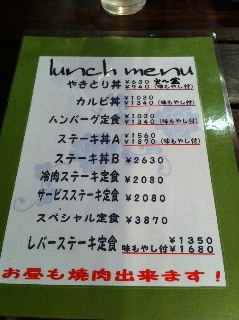 lunch menu
やきとり丼 ¥630 火〜金
¥940 (味もやし付)
カルビ丼 ¥1030
¥1340 (味もやし付)
ハンバーグ定食 ¥1030
¥1340 (味もやし付)
ステーキ丼A ¥1560
¥1870 (味もやし付)
ステーキ丼B ¥2630
冷肉ステーキ定食 ¥2080
サービスステーキ定食 ¥2080
スペシャル定食 ¥3870
レバーステーキ定食 ¥1350
味もやし付 ¥1680
お昼も焼肉出来ます！